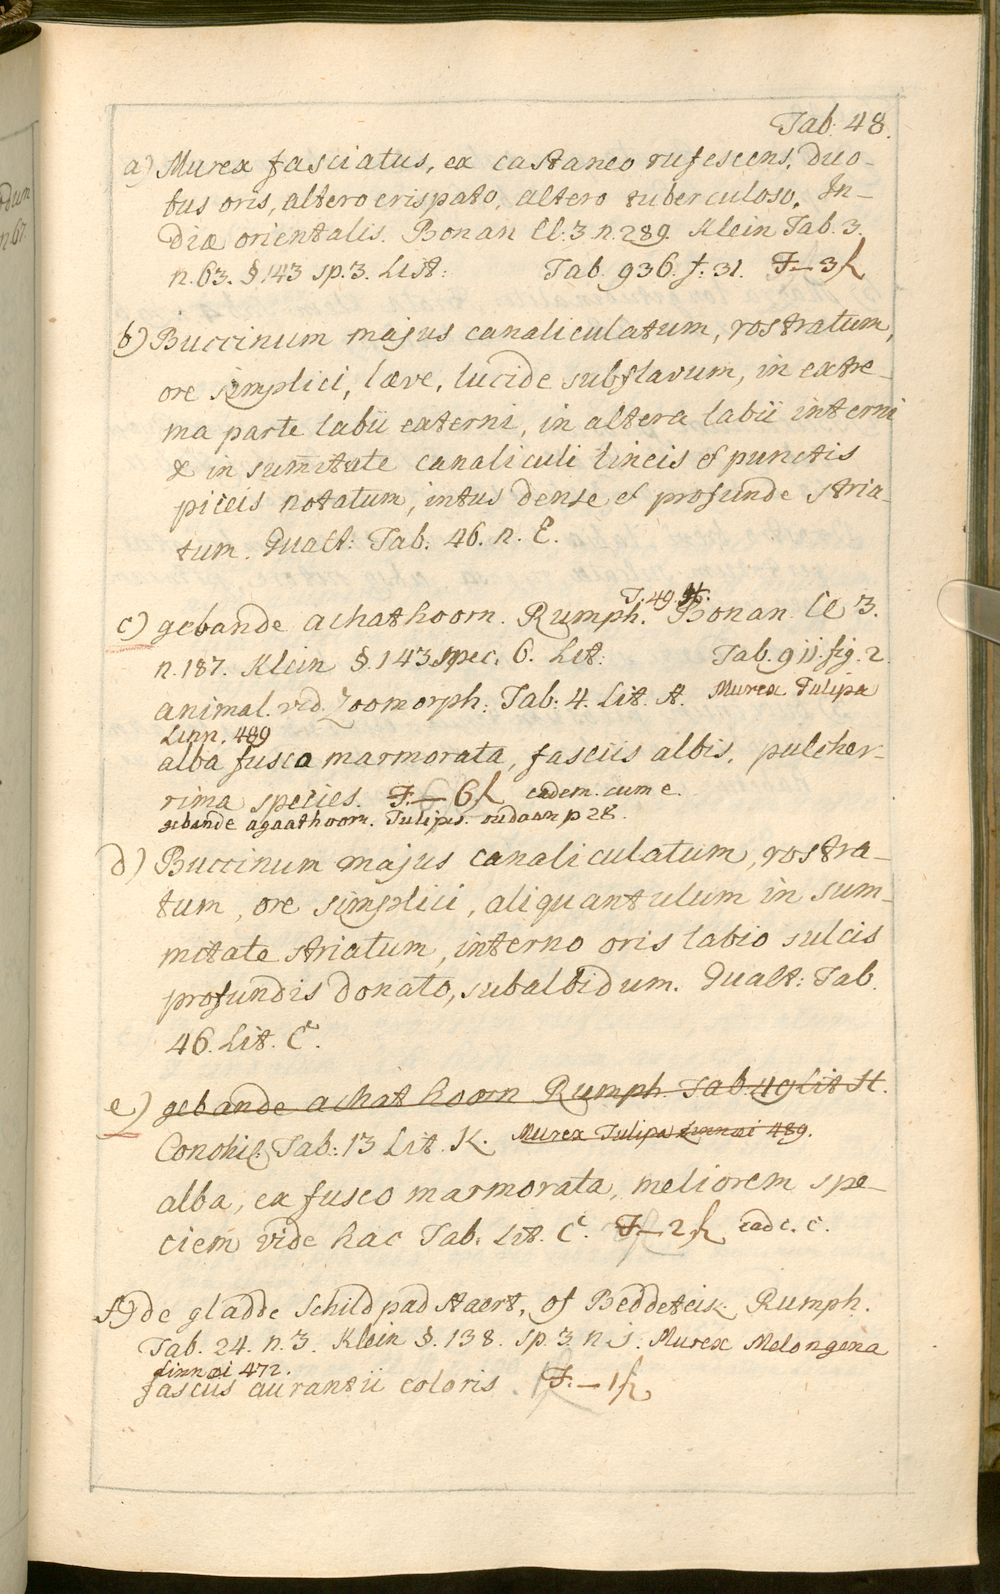 Tab: 48.
a) Murex fasciatus, ex castaneo rufescens, duo-
bus oris, altero crispato, altero tuberculoso. In-
diæ orientalis. Bonan Cl. 3 n. 289. Klein Tab. 3.
n. 63. §. 143 sp. 3. List: Tab. 936. f. 31. F — 3
b) Buccinum majus canaliculatum, rostratum,
ore simplici, læve, lucide subflavum, in extre-
ma parte labii externi, in altera labii interni
& in sumitate canaliculi lineis et punctis
piceis notatum, intus dense et profunde stria-
tum. Gualt: Tab. 46. n. E.
T. 49. H.
c) gebande achathoorn. Rumph. Bonan. Cl 3.
n. 187. Klein §. 143 spec. 6. List: Tab. 911. fig. 2.
animal. vid. Zoomorph: Tab: 4. Lit. A. Murex Tulipa
Linn. 489
alba fusco marmorata, fasciis albis, pulcher-
rima species. F. — 6 eadem. cum e.
gebande agaathoorn. Tulips. oudaan p 28.
d) Buccinum majus canaliculatum, rostra-
tum, ore simplici, aliquantulum in sum-
mitate striatum, interno oris labio sulcis
profundis donato, subalbidum. Gualt: Tab.
46. Lit. C.
e) gebande achat hoorn Rumph. Tab. 49 Lit H.
Conchil. Tab: 13 Lit. K. Murex Tulipa Linnæi 489.
alba, ex fusco marmorata, meliorem spe-
ciem vide hac Tab. Lit. C. F — 2 ead c. c.
f) de gladde Schildpad staert, of Beddeteik. Rumph.
Tab. 24. n. 3. Klein §. 138. sp. 3. n j. Murex Melongena
Linnæi 472.
fasciis aurantii coloris. F. — 1